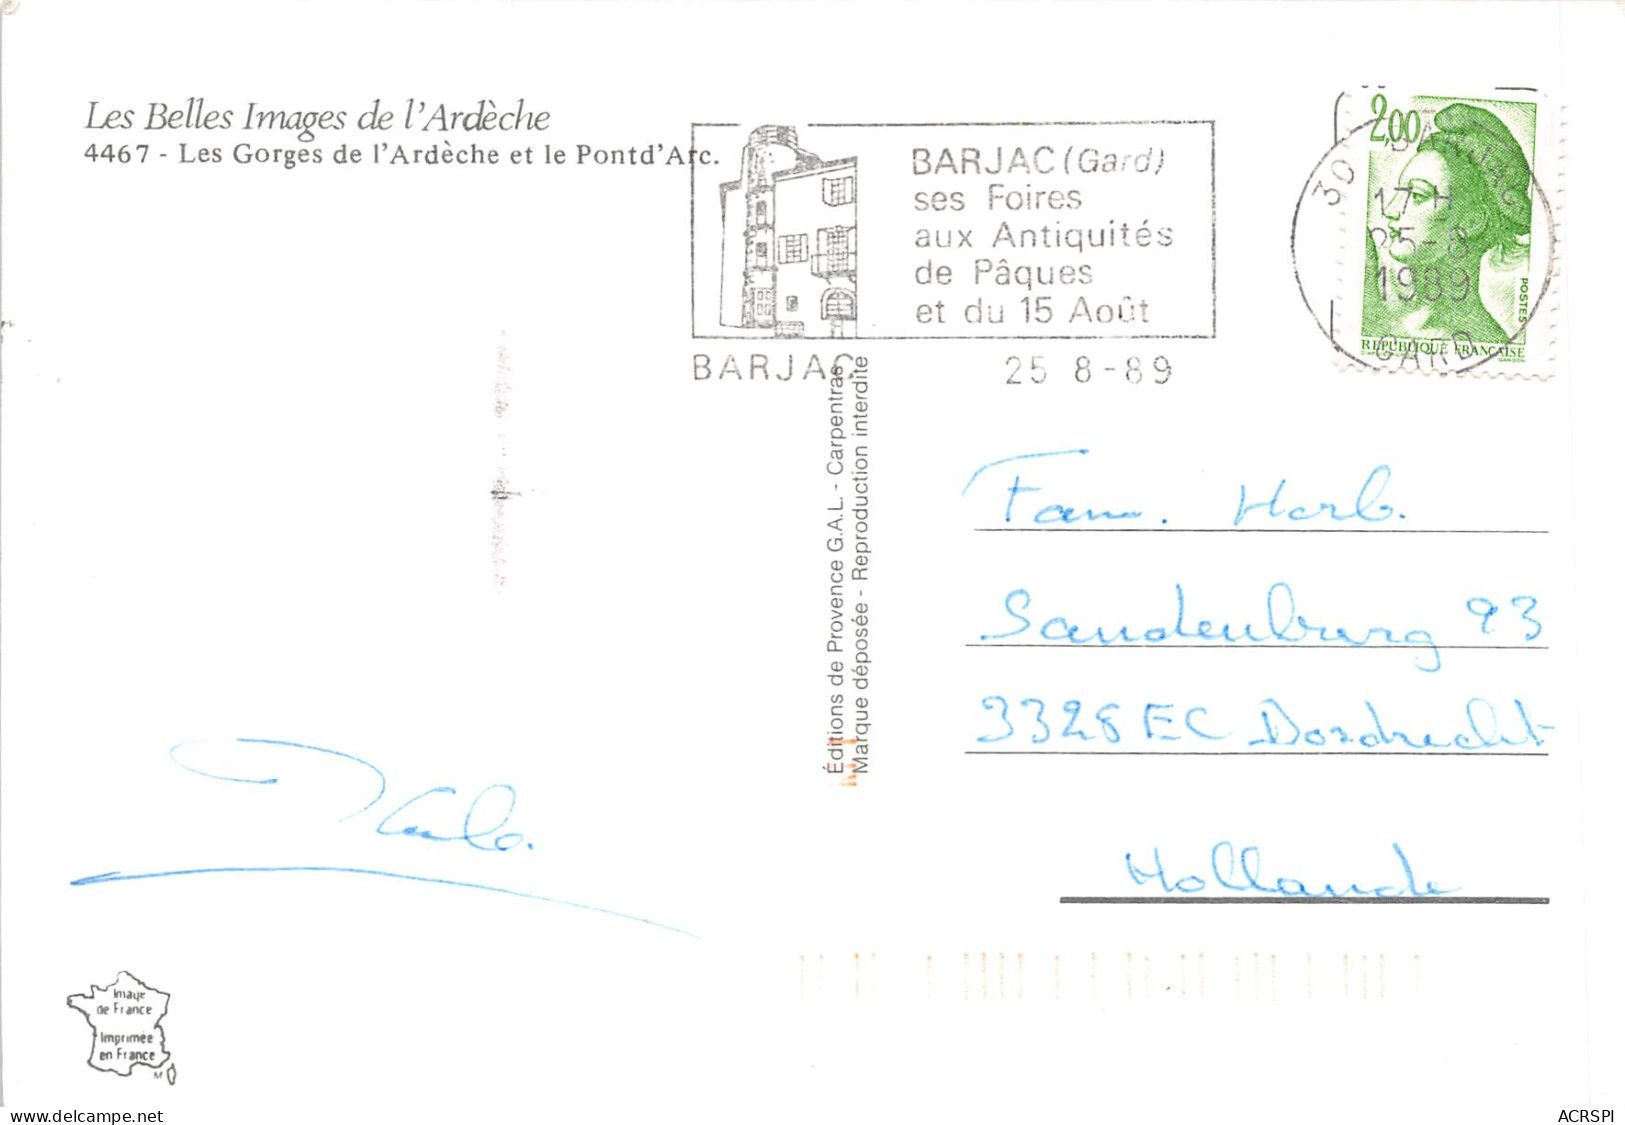 Les Belles Images de l'Ardèche
4467 - Les Gorges de l'Ardèche et le Pontd'Arc.
BARJAC (Gard)
ses Foires
aux Antiquités
de Pâques
et du 15 Août
BARJAC
25 8-89
2,00
30 BARJAC
17 H
25-8
1989
GARD
POSTES
REPUBLIQUE FRANÇAISE
Éditions de Provence G.A.L. - Carpentras
Marque déposée - Reproduction interdite
Fam. Horb.
Sandenburg 93
3328 EC Dordrecht
Hollande
Image
de France
Imprimée
en France
ACRSPI